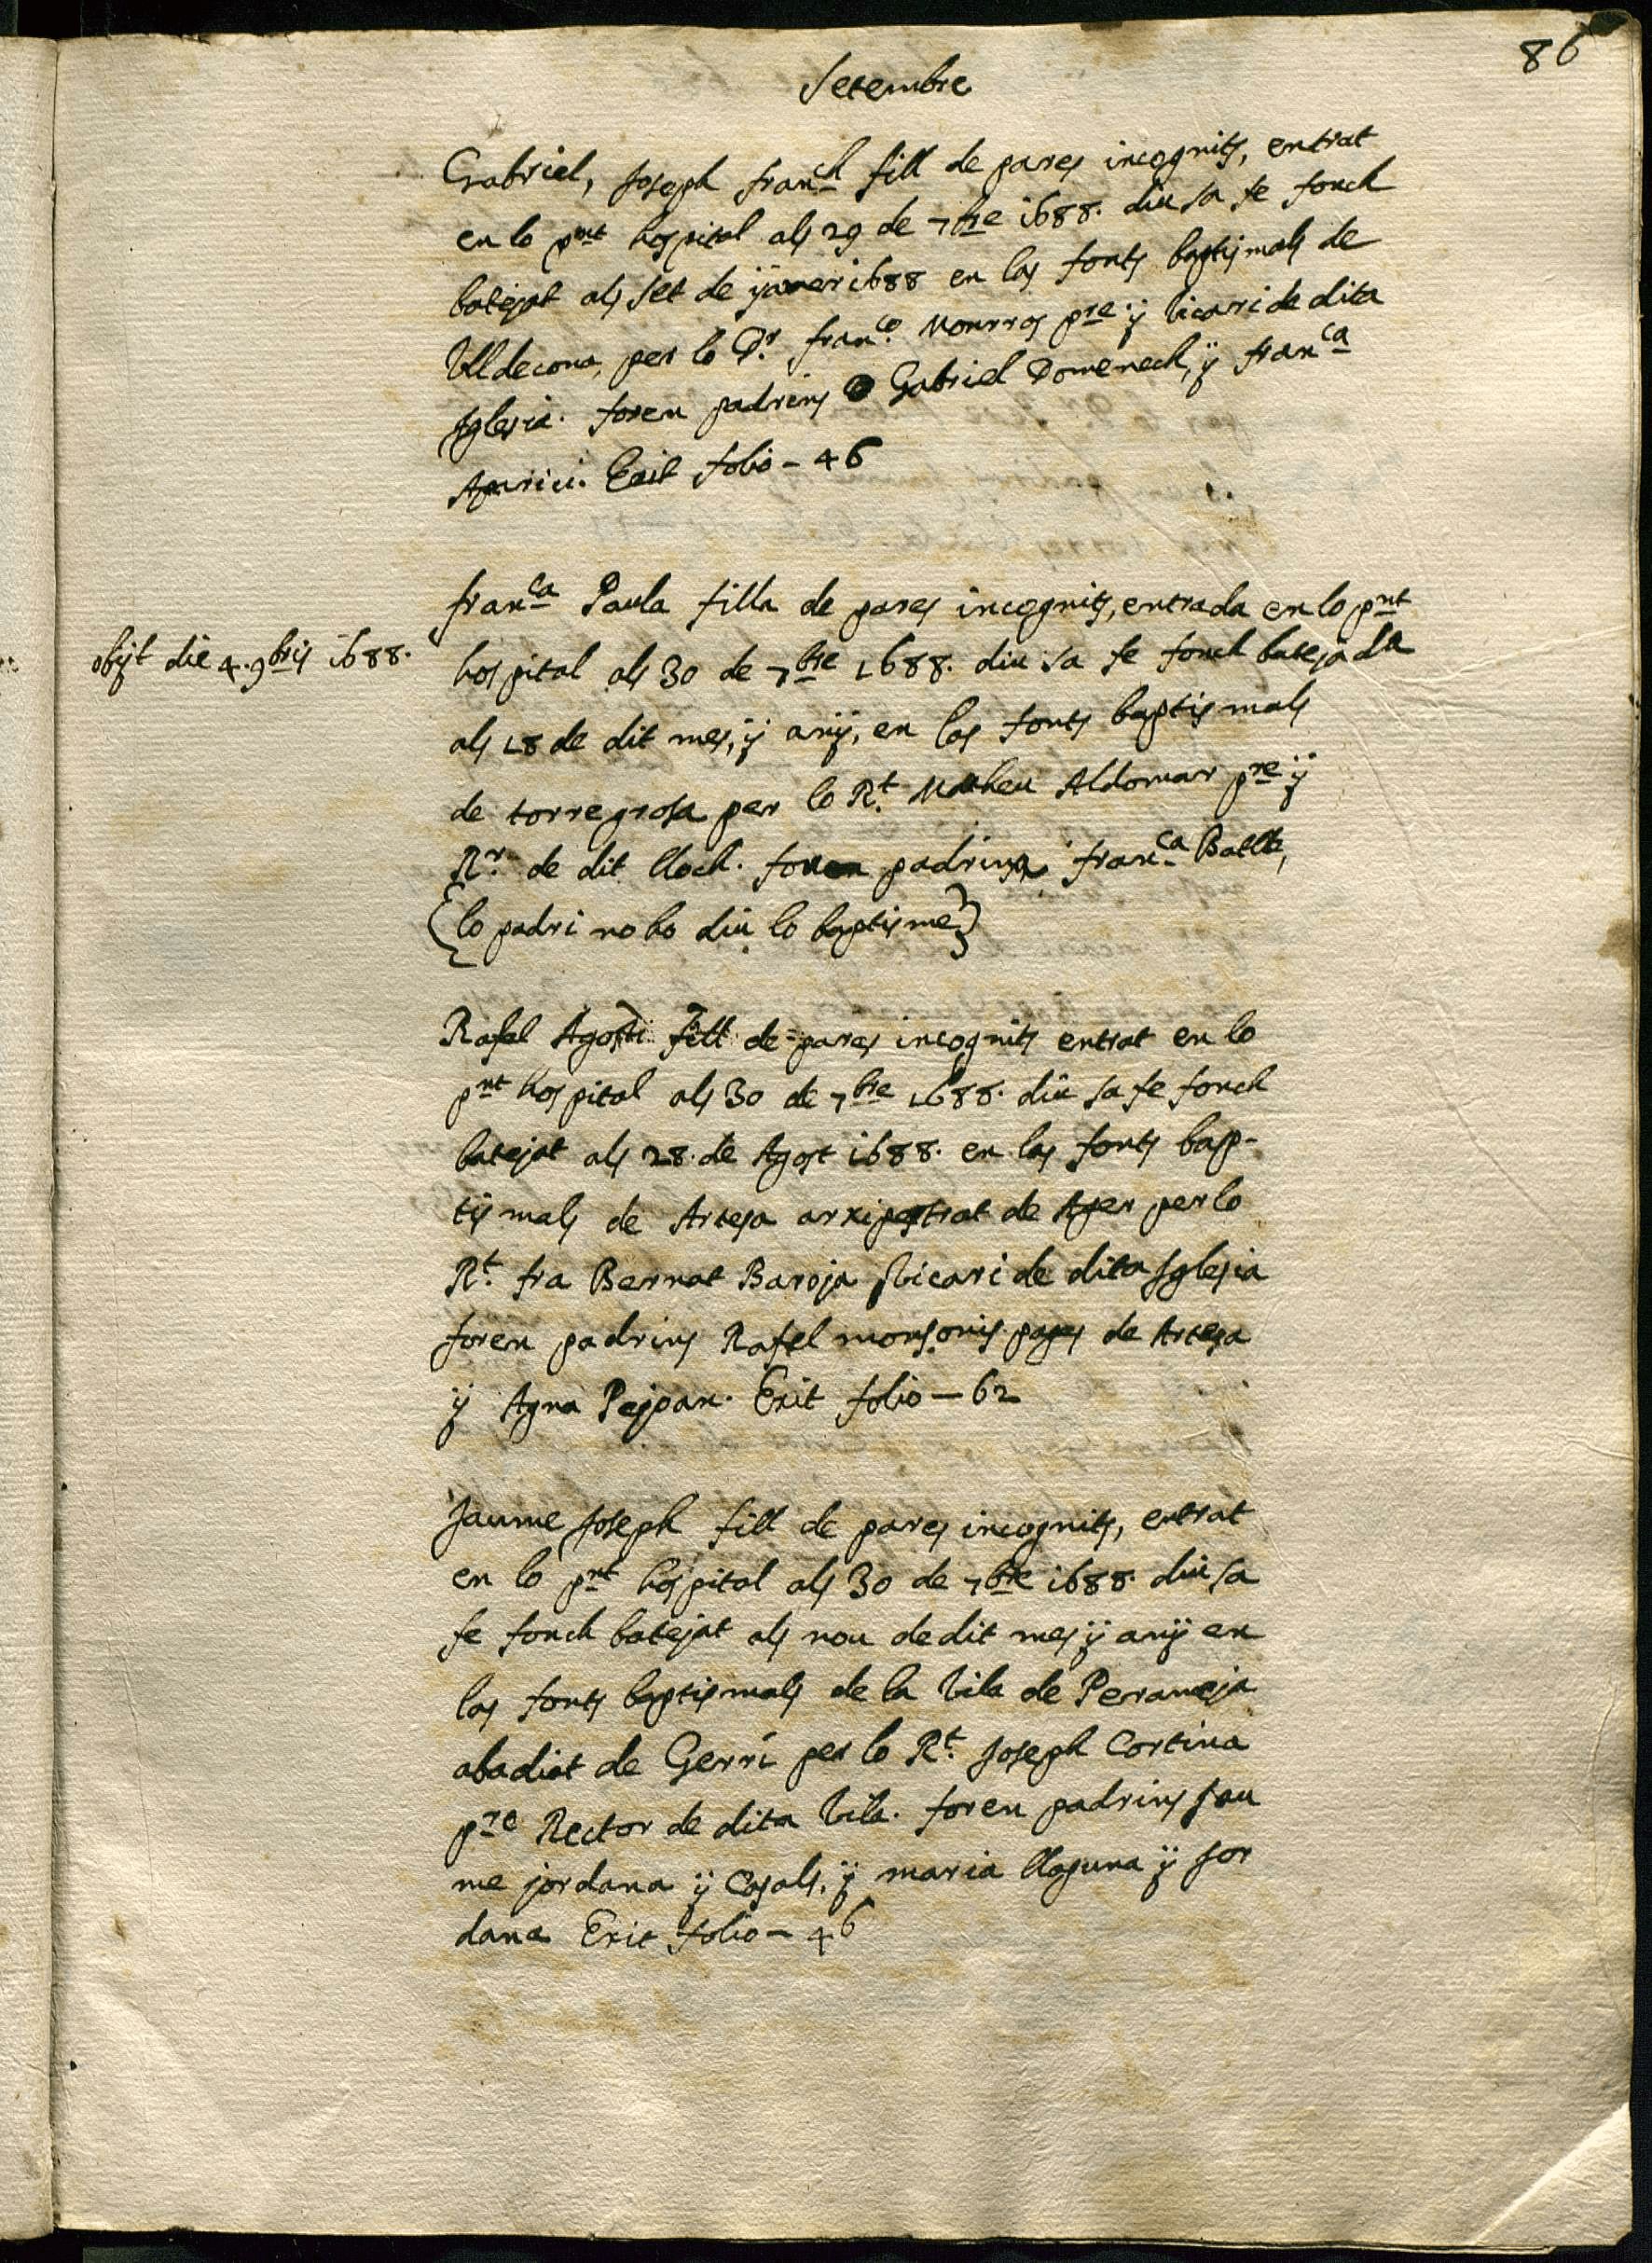 86
Setembre
Gabriel, Joseph fran.ch fill de pares incognits, entrat
en lo pnt hospital als 29 de 7bre 1688. diu sa fe fonch
batejat als set de ÿaner 1688 en las fonts baptismals de
Ulldecona, per lo Dr. franco. Monrros pre. ÿ vicari de dita
Iglesia. foren padrins Gabriel Domenech, ÿ franca
Aparici. Exit folio - 46
obÿt die 4. 9bris 1688.
franca Paula filla de pares incognits, entrada en lo pnt
hospital als 30 de 7bre 1688. diu sa fe fonch batejada
als 18 de dit mes, ÿ anÿ, en las fonts baptismals
de torregrosa per lo Rt. Matheu Aldomar pre ÿ
Rr. de dit lloch. foren padrina franca Batlle,
{lo padri no ho diu lo baptisme}
Rafel Agosti fill de pares incognits entrat en lo
pnt hospital als 30 de 7bre 1688. diu sa fe fonch
batejat als 28. de Agost 1688. en las fonts bap-
tismals de Artesa arxipestrat de Ager per lo
Rt. fra Bernat Baroja Vicari de dita Iglesia
foren padrins Rafel monsonis pages de Artesa
ÿ Agna Pejoan. Exit folio - 62
Jaume Joseph fill de pares incognits, entrat
en lo pnt hospital als 30 de 7bre 1688. diu sa
fe fonch batejat als nou de dit mes ÿ anÿ en
las fonts baptismals de la vila de Perameja
abadiat de Gerri per lo Rt. Joseph Cortina
pre Rector de dita vila. foren padrins Jau
me jordana ÿ Casals, ÿ maria llaguna ÿ Jor
dana Exit folio - 46